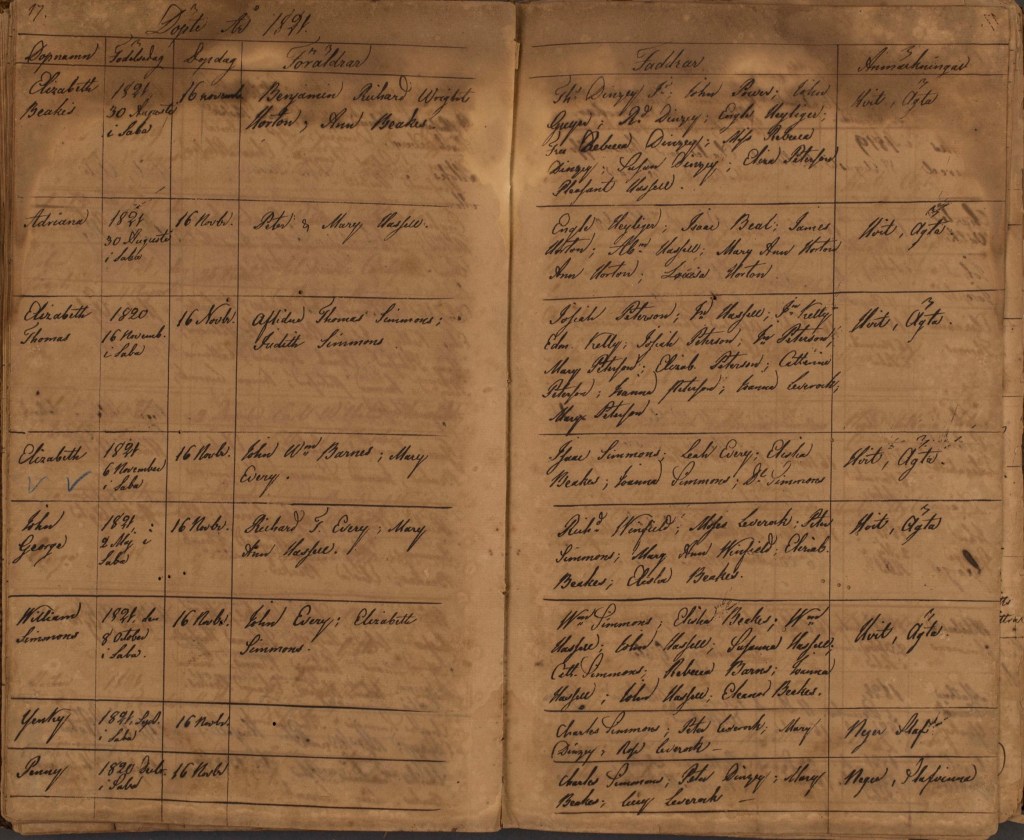 17.
Döpte År 1821.
Dopnamn Födelsedag Dopdag Föräldrar Faddrar Anmärkningar
Elizabeth
Beakes
1821
30 Augusti
i Saba
16 novemb
Benjamin Richard Wright
Horton, Ann Beakes
Ths Dinzey Sr; John Powers; John
Guyer; Rd Dinzey; Engle Heyliger;
Fru Rebecca Dinzey; Miss Rebecca
Dinzey; Susan Dinzey; Eliza Peterson
Pleasant Hassell.
Hvit, Ägta
Adriana
1821
30 Augusti
i Saba
16 Novbr.
Peter & Mary Hassell.
Engle Heyliger; Isaac Beal; James
Horton; Abm Hassell; Mary Ann Horton
Ann Horton; Louisa Horton
Hvit, Ägta
Elizabeth
Thomas
1820
16 Novemb.
i Saba
16 Novbr.
Aflidne Thomas Simmons;
Judith Simmons.
Josiah Peterson; Hassell; Kelly
Edm Kelly; Josiah Peterson; Peterson;
Mary Peterson; Elizab. Peterson; Catharine
Peterson; Joanna Peterson; Joanna Leverock;
Mary Peterson.
Hvit, Ägta.
Elizabeth
1821
6 November
i Saba
16 Novbr.
John Wm Barnes; Mary
Every.
Isaac Simmons; Leah Every; Elisha
Beakes; Joanna Simmons; Simmons
Hvit, Ägta.
John
George
1821.
2 Maj i
Saba
16 Novbr.
Richard T. Every; Mary
Ann Hassell.
Richd Winfield; Moses Leverock; Peter
Simmons; Mary Ann Winfield; Elizab.
Beakes; Elisha Beakes.
Hvit, Ägta
William
Simmons
1821. den
8 October
i Saba.
16 Novbr.
John Every; Elizabeth
Simmons.
Wm Simmons; Elisha Beakes; Wm
Hassell; John Hassell; Susanna Hassell;
Cath. Simmons; Rebecca Barns; Joanna
Hassell; John Hassell; Eleanor Beakes.
Hvit, Ägta
1821.
i Saba
16 Novbr.
Charles Simmons; Peter Leverock; Mary
Dinzey; Rose Leverock —
Neger Slaf
Penny
1820
i Saba
16 Novbr
Charles Simmons; Peter Dinzey; Mary
Beakes; Lucy Leverock —
Neger, Slafvinna